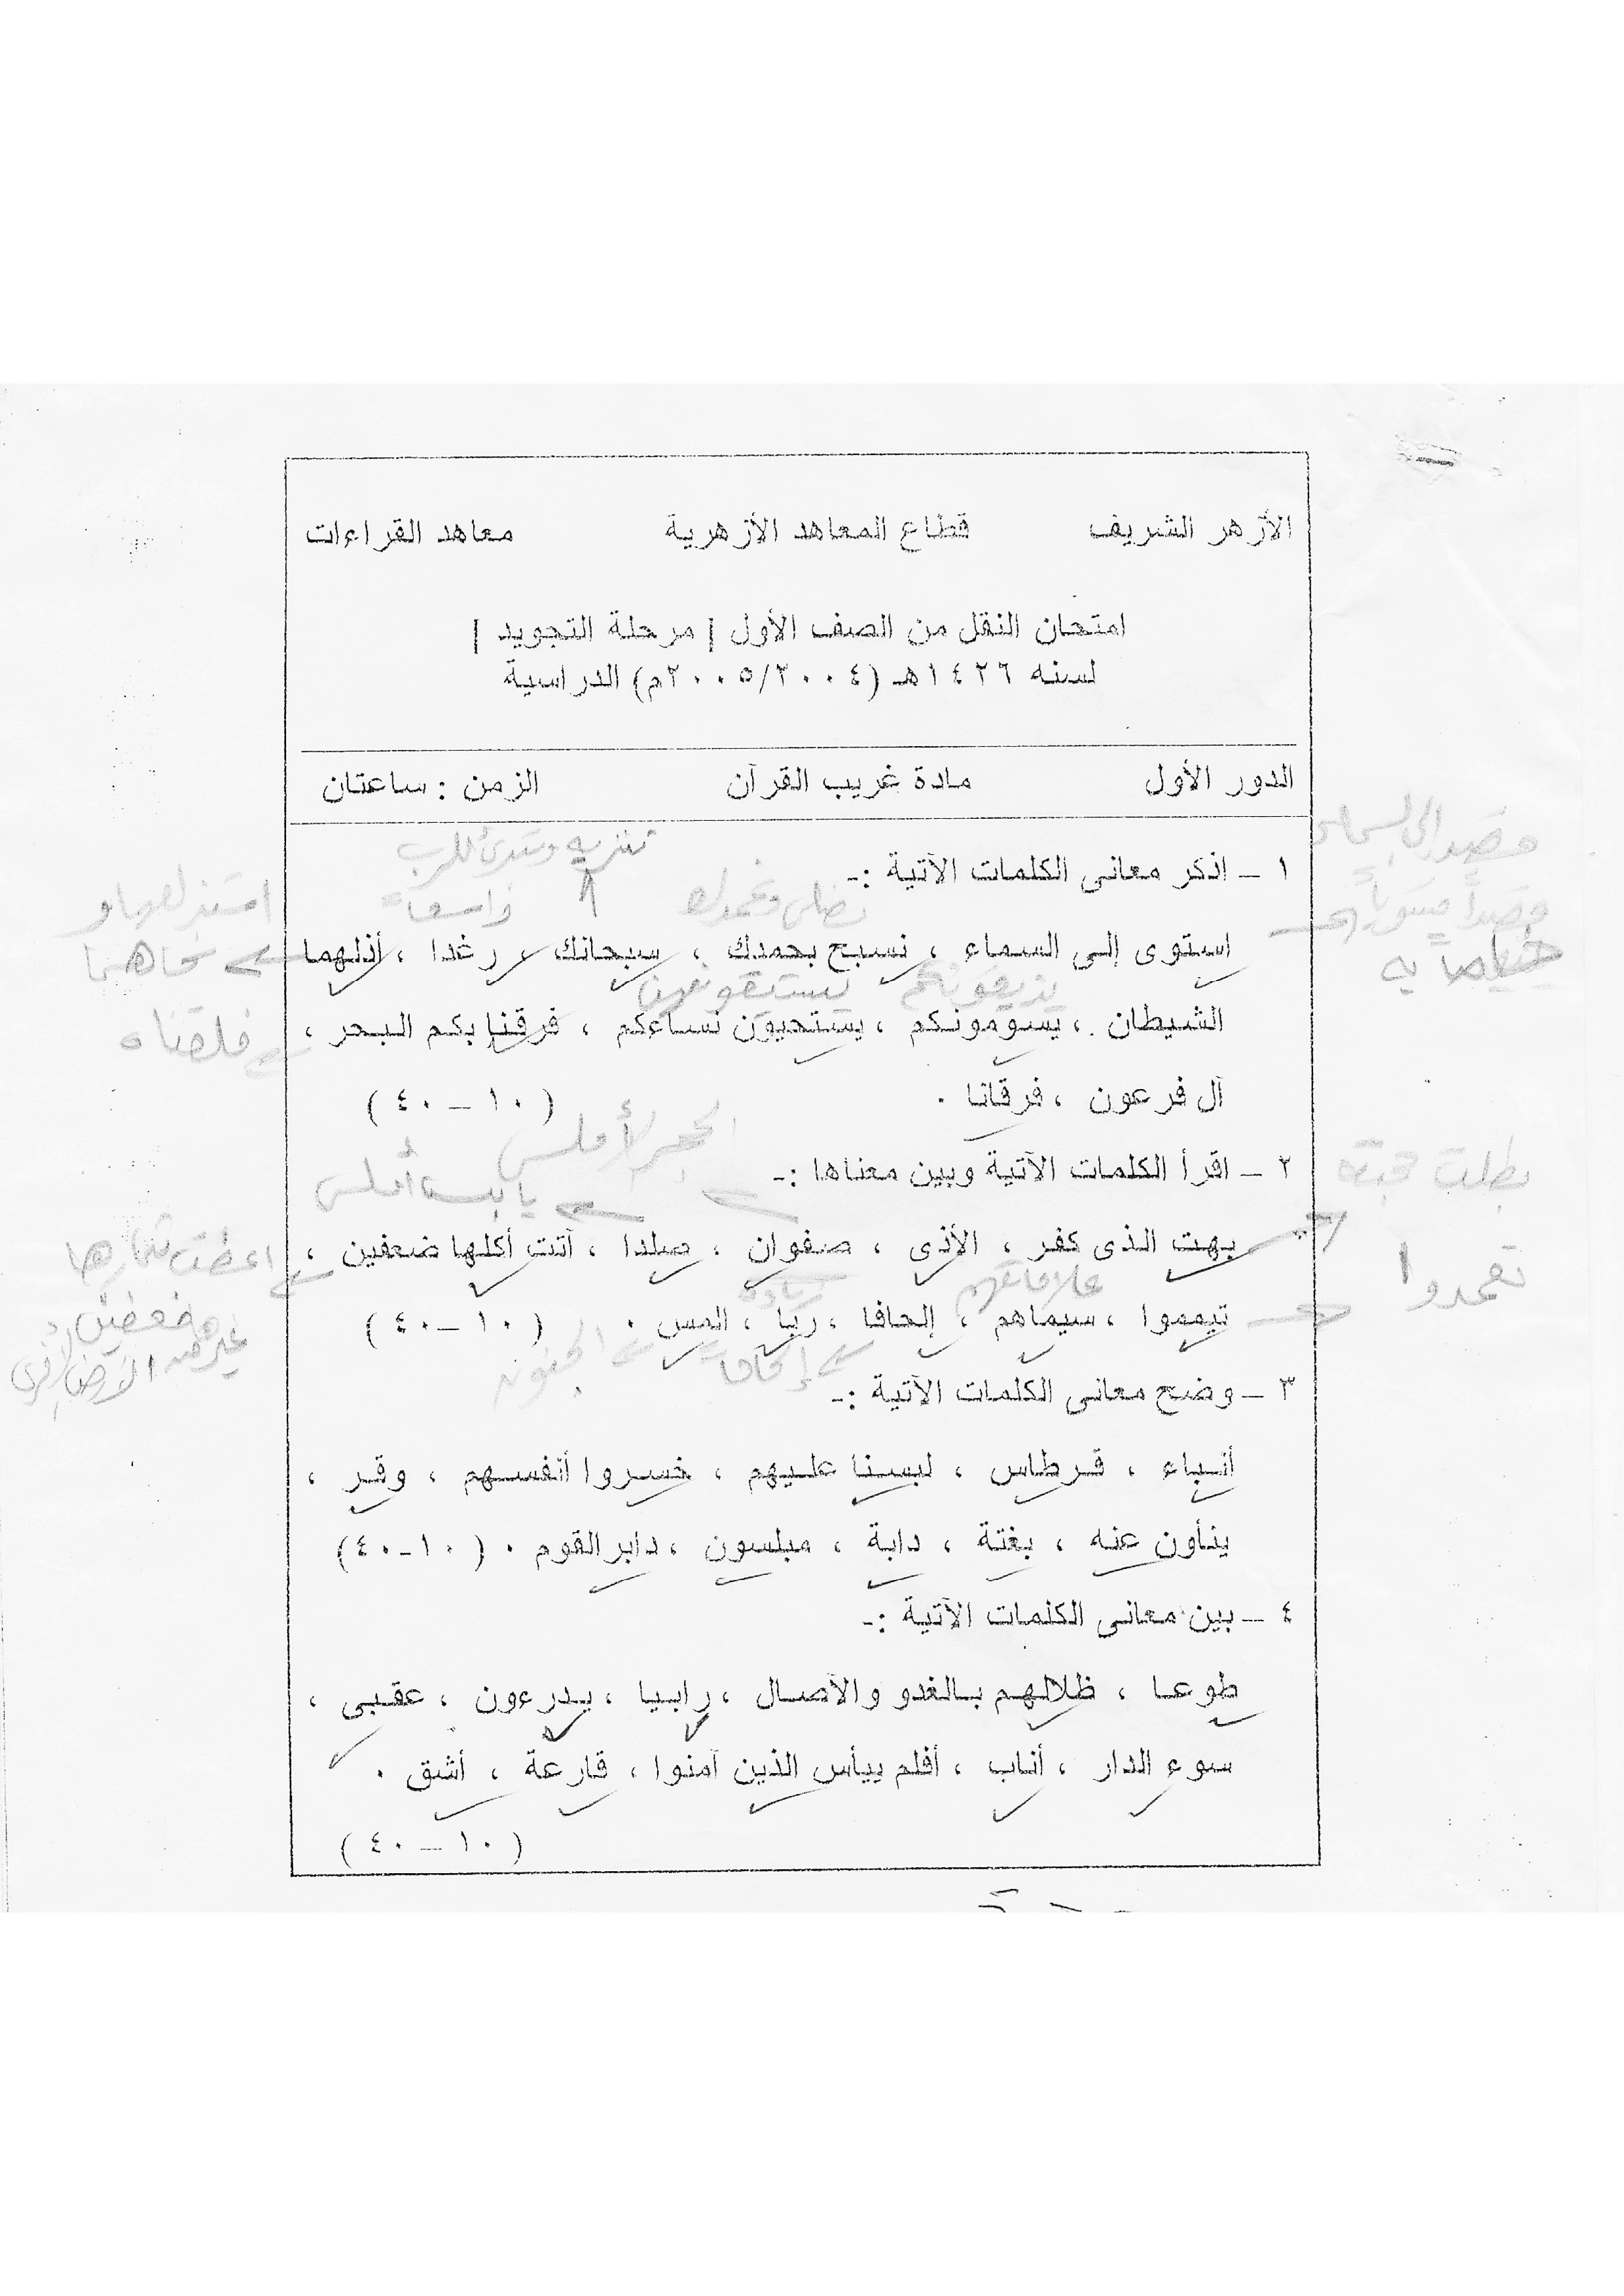 الأزهر الشريف قطاع المعاهد الأزهرية معاهد القراءات
امتحان النقل من الصف الأول | مرحلة التجويد |
لسنه ١٤٢٦هـ (٢٠٠٥/٢٠٠٤م) الدراسية
الدور الأول مادة غريب القرآن الزمن : ساعتان
قصد إلى السماء
تنزيه
١ – اذكر معانى الكلمات الآتية :-
واسعا
استوى إلى السماء ، نسبح بحمدك ، سبحانك ، رغدا ، أذلهما
يذيقونكم
الشيطان ، يسومونكم ، يستحيون نساءكم ، فرقنا بكم البحر ،
فلقناه
آل فرعون ، فرقانا . (١٠ – ٤٠)
الحجر الأملس
٢ – اقرأ الكلمات الآتية وبين معناها :-
يابسا أملس
بهت الذى كفر ، الأذى ، صفوان ، صلدا ، آتت أكلها ضعفين ،
أعطت ثمارها
ضعفين
علاماتهم
تيمموا ، سيماهم ، إلحافا ، ربا ، المس . (١٠ – ٤٠)
الجنون
٣ – وضح معانى الكلمات الآتية :-
أنباء ، قرطاس ، لبسنا عليهم ، خسروا أنفسهم ، وقر ،
ينأون عنه ، بغتة ، دابة ، مبلسون ، دابر القوم . (١٠-٤٠)
٤ – بين معانى الكلمات الآتية :-
طوعا ، ظلالهم بالغدو والآصال ، رابيا ، يدرءون ، عقبى ،
سوء الدار ، أناب ، أفلم ييأس الذين آمنوا ، قارعة ، أشق .
(١٠ – ٤٠)